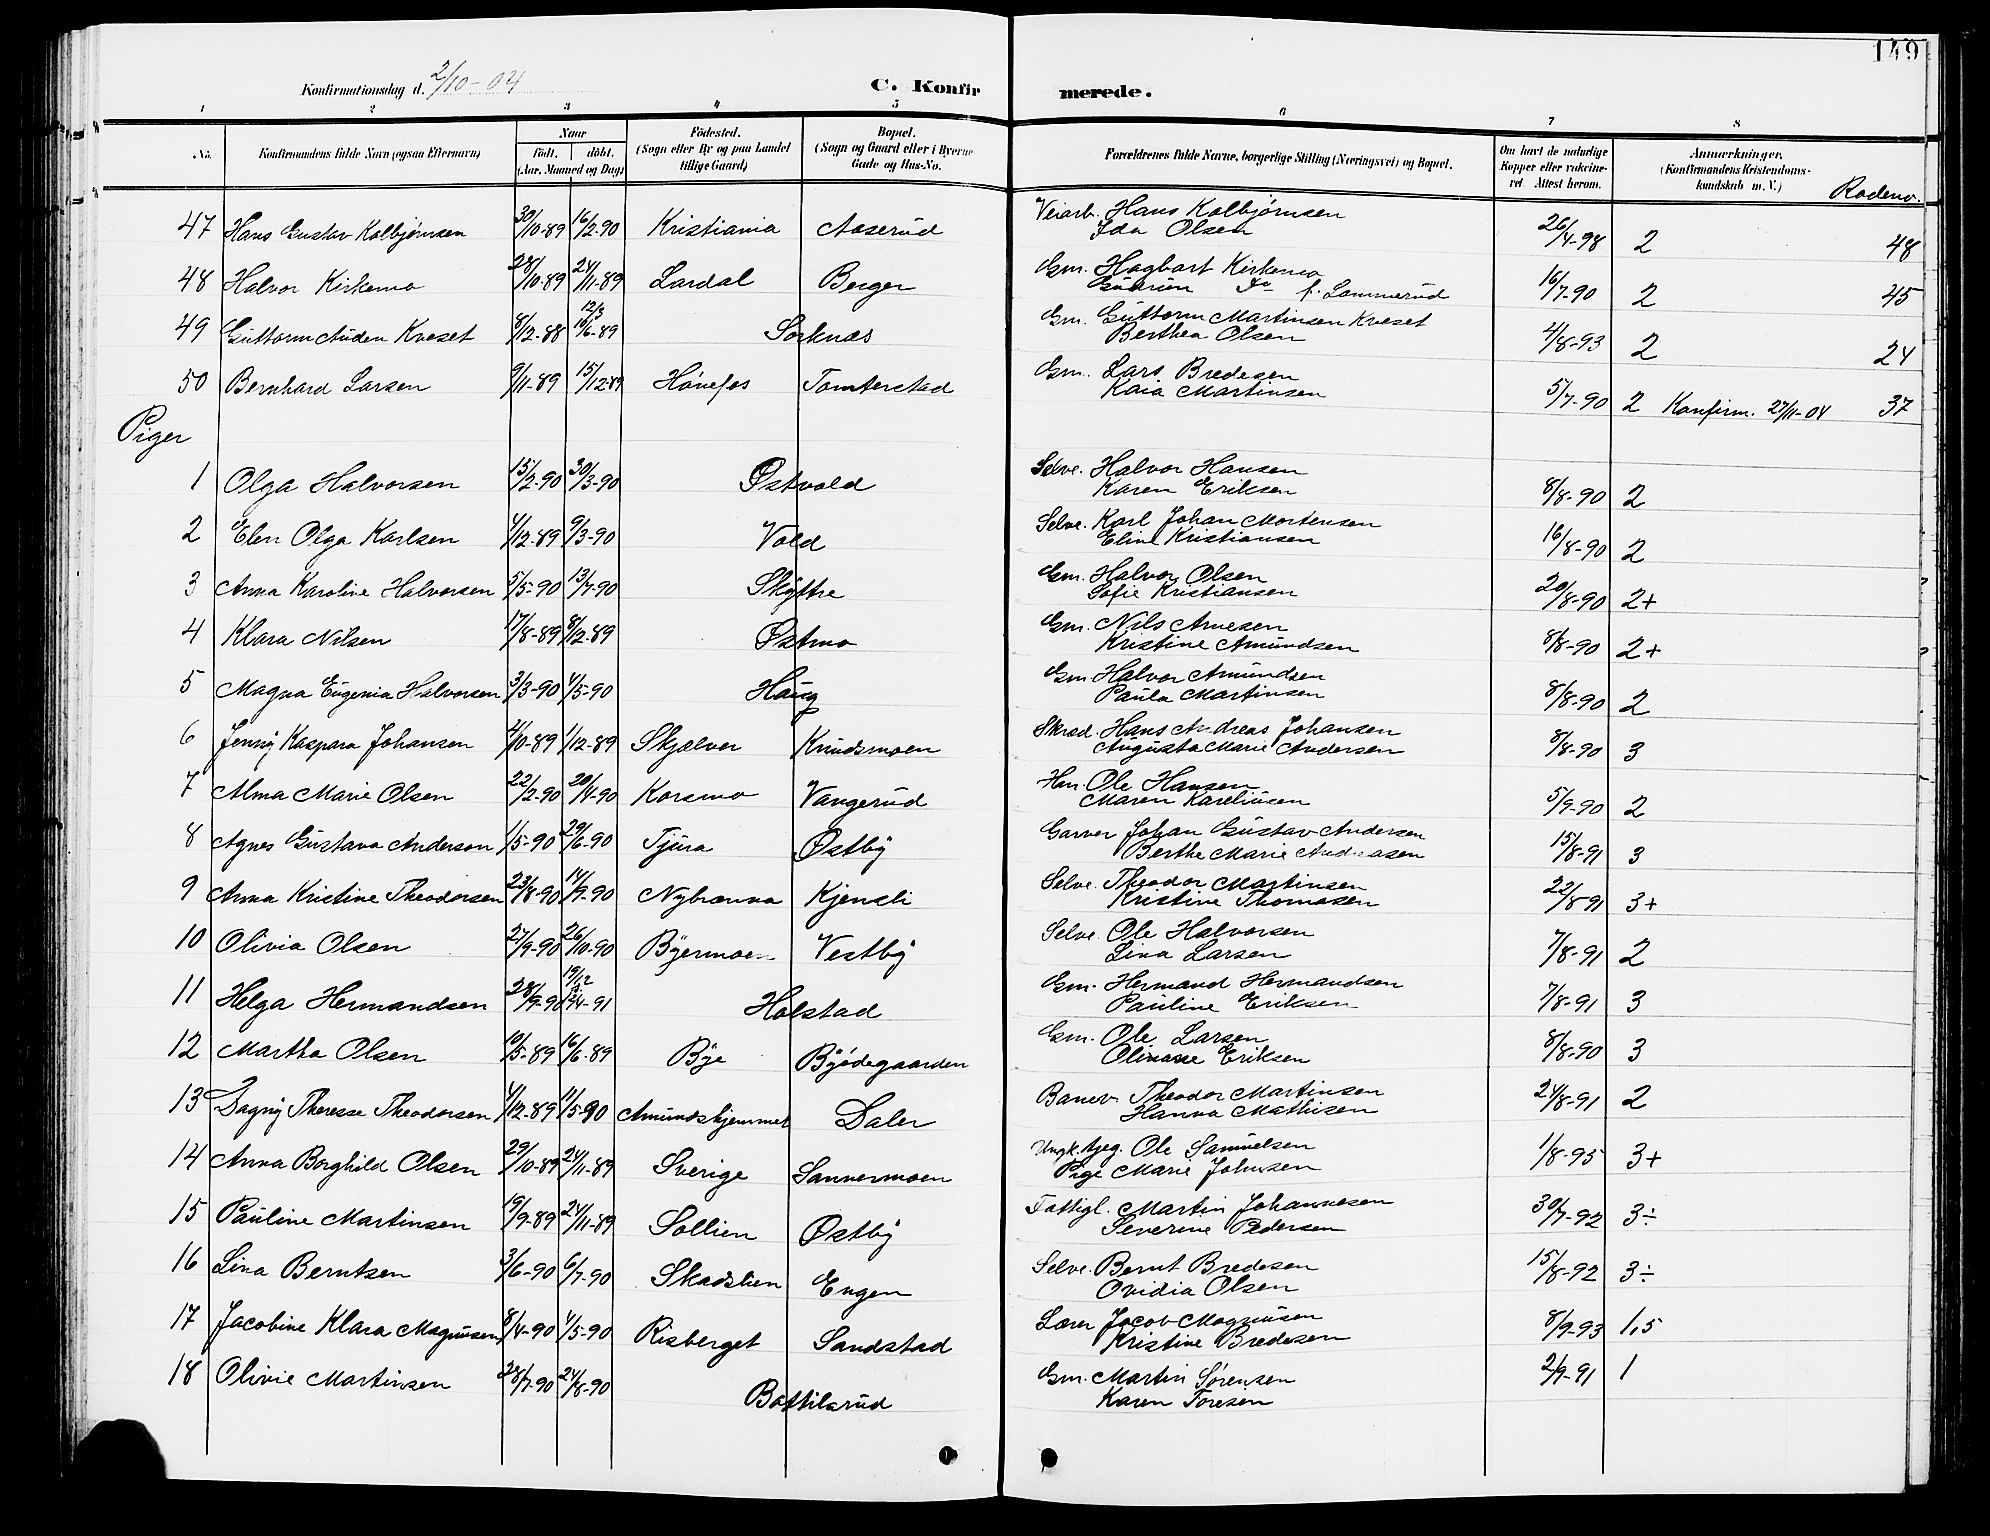 149
Konfirmationsdag d. 2/10-04
C. Konfirmerede.
1 2 3 4 5 6 7 8
No. Konfirmandens fulde Navn (ogsaa Efternavn) Naar født. døbt. (Aar, Maaned og Dag) Fødested. (Sogn eller By og paa Landet tillige Gaard) Bopæl. (Sogn og Gaard eller i Byerne Gade og Hus-No. Forældrenes fulde Navne, borgerlige Stilling (Næringsvei) og Bopæl. Om havt de naturlige Kopper eller vakcineret. Attest herom. Anmærkninger. (Konfirmandens Kristendomskundskab m. V.) Rodeno.
47 Hans Gustav Kolbjørnsen 30/10-89 16/2-90 Kristiania Aaserud Veiarb. Hans Kolbjørnsen 26/4-98 2 48
Ida Olsen
48 Halvor Kirkemo 28/10-89 24/11-89 Lardal Berger Gm. Hagbart Kirkemo 16/7-90 2 45
Gudrun f. Lommerud
49 Guttorm Auden Kveset 8/12-88 12/3 10/6-89 Sorknæs Gm. Guttorm Martinsen Kveset 4/8-93 2 24
Berthea Olsen
50 Bernhard Larsen 9/11-89 15/12-89 Hønefos Tomterstad Gm. Lars Bredesen 5/7-90 2 Konfirm. 27/11-04 37
Kaia Martinsen
Piger
1 Olga Halvorsen 15/2-90 30/3-90 Østvold Selve. Halvor Hansen 8/8-90 2
Karen Eriksen
2 Elen Olga Karlsen 4/12-89 9/3-90 Vold Selve. Karl Johan Mortensen 16/8-90 2
Eline Kristiansen
3 Anna Karoline Halvorsen 5/5-90 13/7-90 Skyttre Gm. Halvor Olsen 20/8-90 2+
Sofie Kristiansen
4 Klara Nilsen 17/8-89 8/12-89 Østmo Gm. Nils Arnesen 8/8-90 2+
Kristine Amundsen
5 Magna Eugenia Halvorsen 3/3-90 4/5-90 Haug Gm Halvor Amundsen 8/8-90 2
Paula Martinsen
6 Jenny Kaspara Johansen 4/10-89 1/12-89 Skjælver Knudsmoen Skræd. Hans Andreas Johansen 8/8-90 3
Augusta Marie Andersen
7 Alma Marie Olsen 22/2-90 20/4-90 Korsmo Vangerud Hm. Ole Hansen 5/9-90 2
Maren Kareliusen
8 Agnes Gustava Anderson 1/5-90 29/6-90 Tjura Østby Garver Johan Gustav Andersen 15/8-91 3
Berthe Marie Andreasen
9 Anna Kristine Theodorsen 23/8-90 14/9-90 Nybrænna Kjensli Selve. Theodor Martinsen 22/8 91 3+
Kristine Thomasen
10 Olivia Olsen 27/9-90 26/10-90 Byermoen Vestby Selve. Ole Halvorsen 7/8-91 2
Lina Larsen
11 Helga Hermandsen 28/9-90 19/12 12/4-91 Holstad Gm. Hermand Hermandsen 7/8-91 3
Pauline Eriksen
12 Martha Olsen 10/5-89 16/6-89 Bye Byødegaarden Gm. Ole Larsen 8/8-90 3
Olianne Eriksen
13 Dagny Theresse Theodorsen 4/12-89 11/5-90 Amundshjemmet Daler Banev. Theodor Martinsen 24/8-91 2
Hanna Mathisen
14 Anna Borghild Olsen 29/10-89 24/11-89 Sverige Sannermoen Ungk. Ole Samuelsen 1/8-95 3+
Pige Marie Johnsen
15 Pauline Martinsen 19/9-89 24/11-89 Sollien Østby Fattigl. Martin Johannesen 30/7-92 3÷
Severine Pedersen
16 Lina Berntsen 3/6-90 6/7-90 Skadslien Engen Selve. Bernt Bredesen 15/8-92 3÷
Ovidia Olsen
17 Jacobine Klara Magnusen 8/4-90 4/5-90 Risberget Sandstad Lærer Jacob Magnusen 8/9-93 1,5
Kristine Bredesen
18 Olivie Martinsen 28/7-90 24/8-90 Bottilsrud Gm. Martin Sørensen 2/9-91 1
Karen Toresen